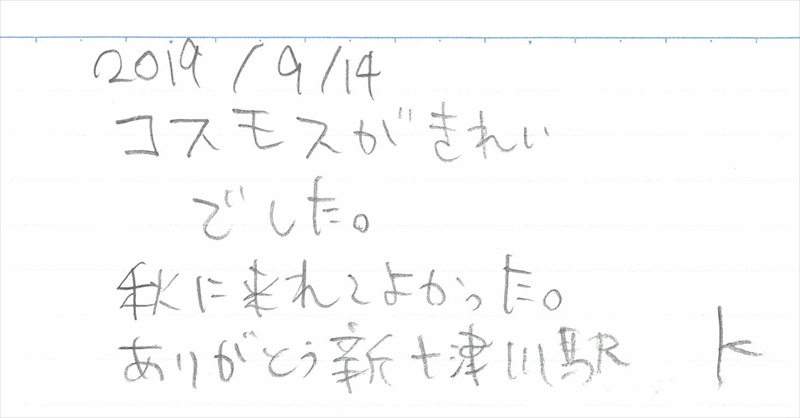 2019/9/14
コスモスがきれい
でした。
秋に来れてよかった。
ありがとう新十津川駅 K